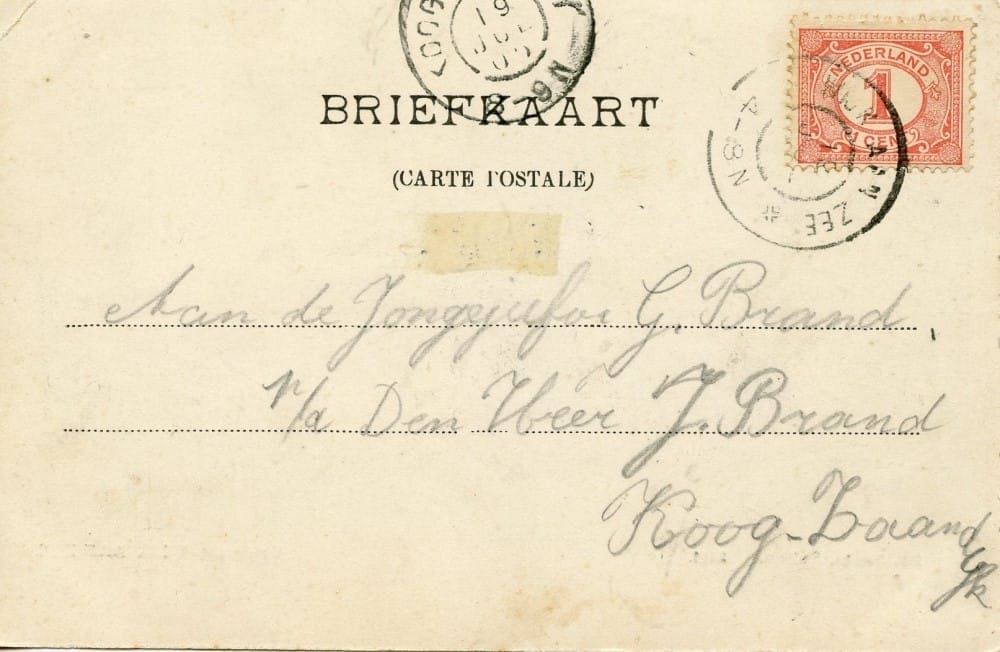 KOOG
19
JUL
6-9N
BRIEFKAART
(CARTE POSTALE)
NEDERLAND
1
1 CENT
AAN ZEE
4-8N
Aan de Jongejufor G. Brand
p/a Den Heer J. Brand
Koog-Zaandijk